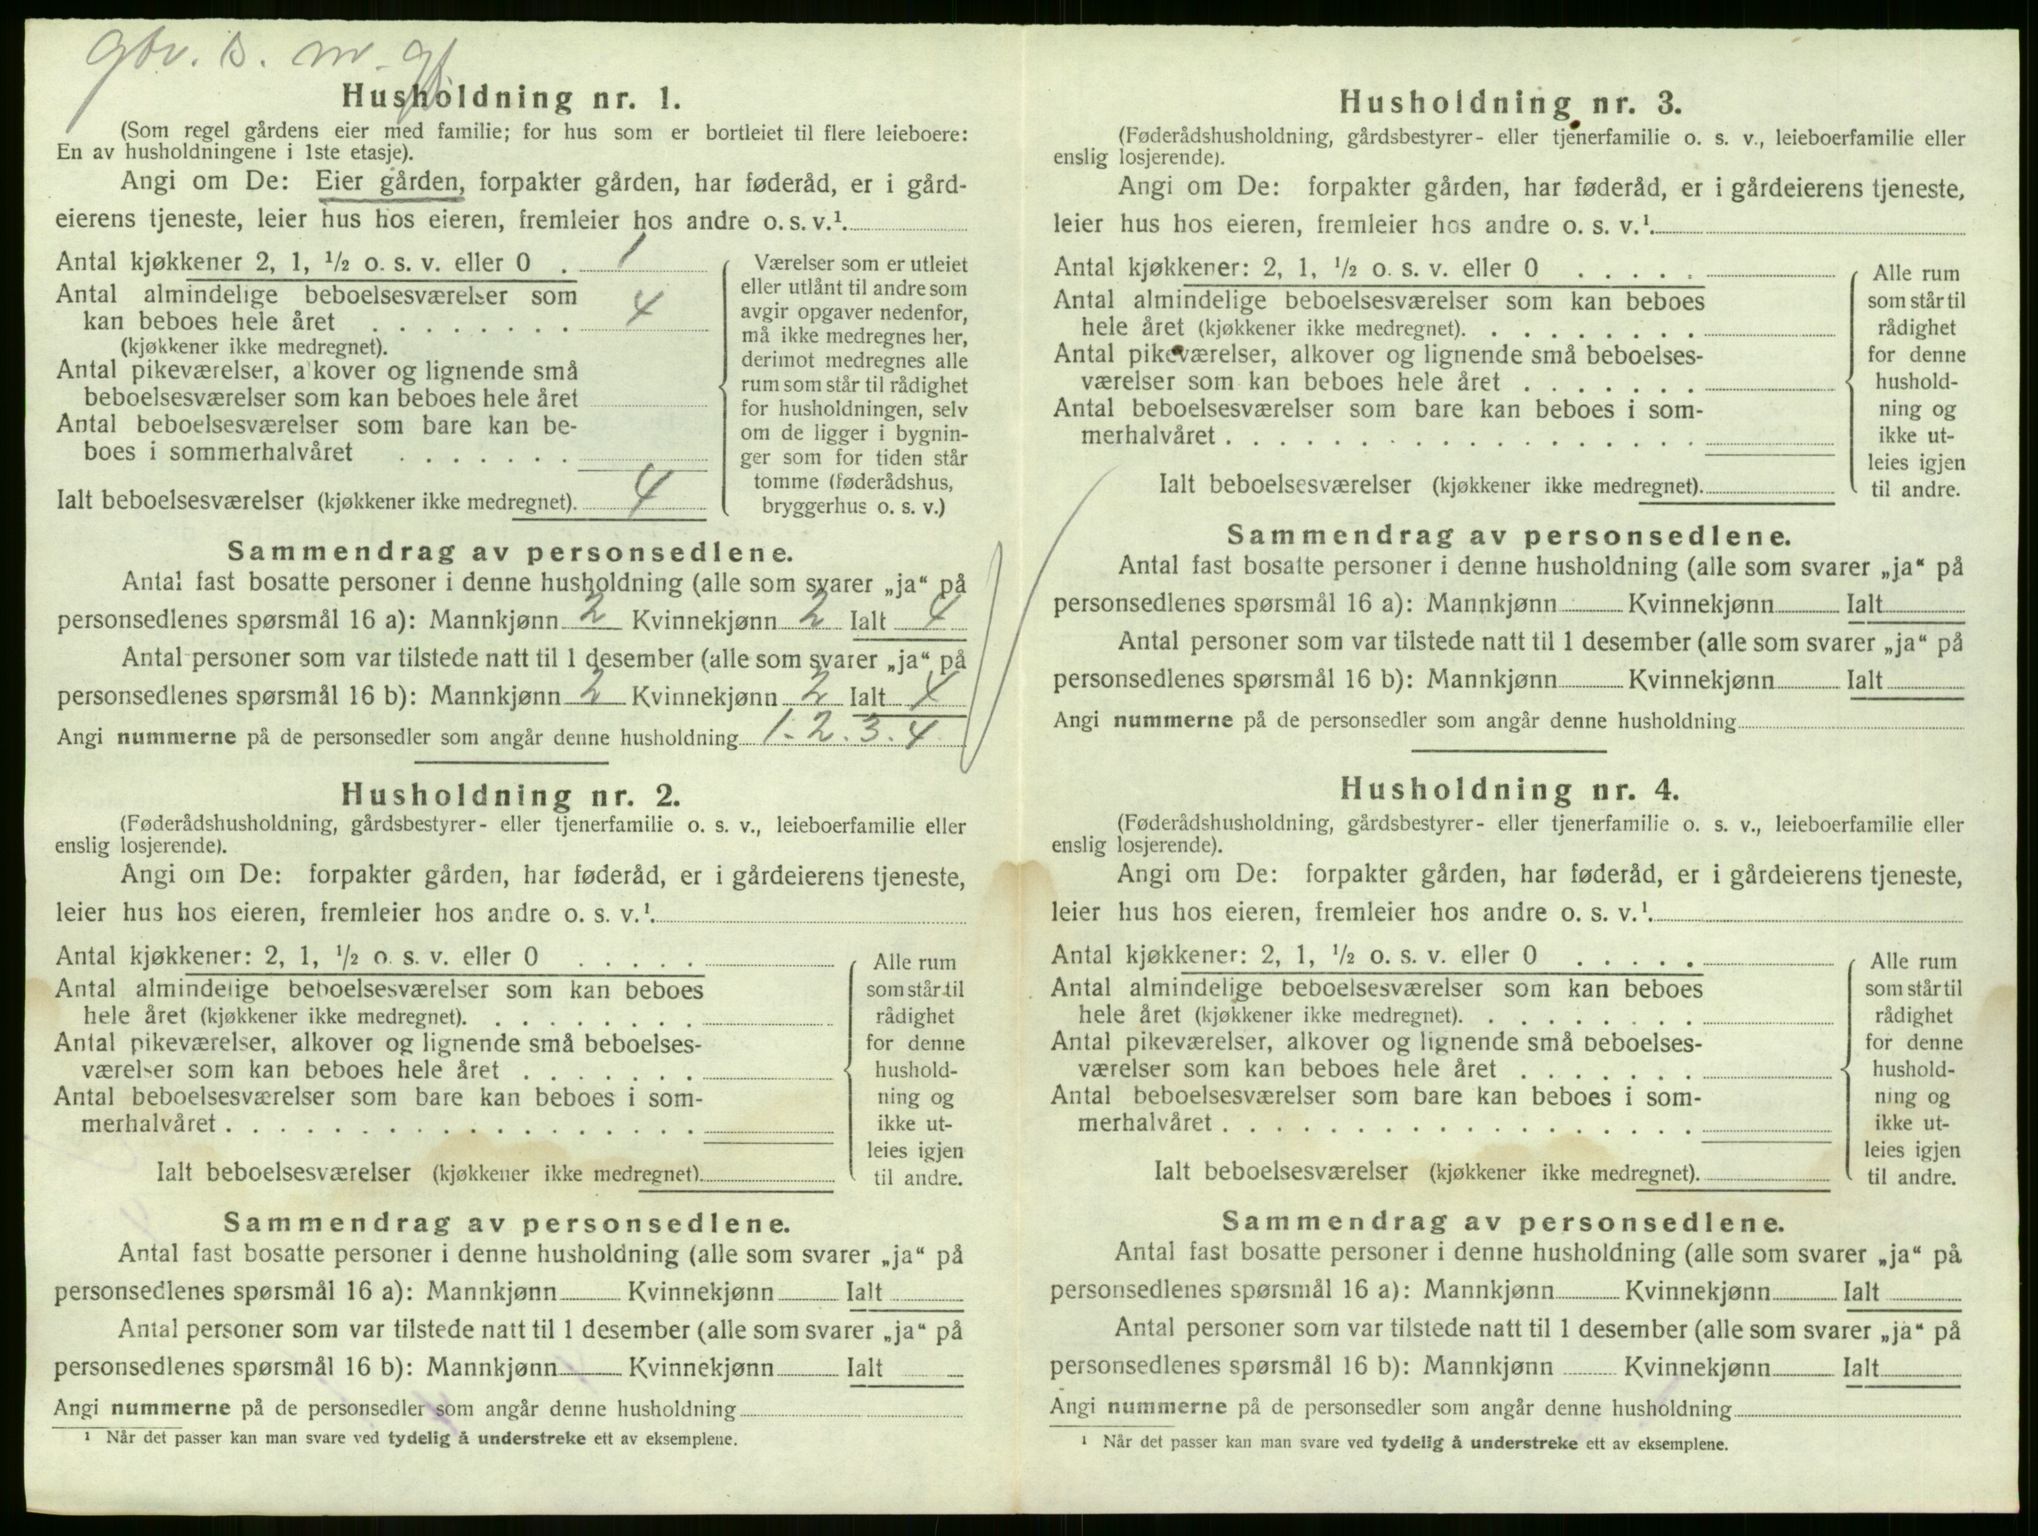 Husholdning nr. 1.
(Som regel gårdens eier med familie; for hus som er bortleiet til flere leieboere:
En av husholdningene i 1ste etasje).
Angi om De: Eier gården, forpakter gården, har føderåd, er i gård-
eierens tjeneste, leier hus hos eieren, fremleier hos andre o. s. v.¹.
Antal kjøkkener 2, 1, ½ o. s. v. eller 0 . 1
Antal almindelige beboelsesværelser som
kan beboes hele året . . . . . . . . 4
(kjøkkener ikke medregnet).
Antal pikeværelser, alkover og lignende små
beboelsesværelser som kan beboes hele året
Antal beboelsesværelser som bare kan be-
boes i sommerhalvåret . . . . . . .
Ialt beboelsesværelser (kjøkkener ikke medregnet). 4
Værelser som er utleiet
eller utlånt til andre som
avgir opgaver nedenfor,
må ikke medregnes her,
derimot medregnes alle
rum som står til rådighet
for husholdningen, selv
om de ligger i bygnin-
ger som for tiden står
tomme (føderådshus,
bryggerhus o. s. v.)
Sammendrag av personsedlene.
Antal fast bosatte personer i denne husholdning (alle som svarer „ja“ på
personsedlenes spørsmål 16 a): Mannkjønn 2 Kvinnekjønn 2 Ialt 4
Antal personer som var tilstede natt til 1 desember (alle som svarer „ja“ på
personsedlenes spørsmål 16 b): Mannkjønn 2 Kvinnekjønn 2 Ialt 4
Angi nummerne på de personsedler som angår denne husholdning 1. 2. 3. 4
Husholdning nr. 2.
(Føderådshusholdning, gårdsbestyrer- eller tjenerfamilie o. s. v., leieboerfamilie eller
enslig losjerende).
Angi om De: forpakter gården, har føderåd, er i gårdeierens tjeneste,
leier hus hos eieren, fremleier hos andre o. s. v.¹.
Antal kjøkkener: 2, 1, ½ o. s. v. eller 0 . . . . .
Antal almindelige beboelsesværelser som kan beboes
hele året (kjøkkener ikke medregnet). . . . . . . . .
Antal pikeværelser, alkover og lignende små beboelses-
værelser som kan beboes hele året . . . . . . .
Antal beboelsesværelser som bare kan beboes i som-
merhalvåret . . . . . . . . . . . . . . . . . .
Ialt beboelsesværelser (kjøkkener ikke medregnet).
Alle rum
som står til
rådighet
for denne
hushold-
ning og
ikke ut-
leies igjen
til andre.
Sammendrag av personsedlene.
Antal fast bosatte personer i denne husholdning (alle som svarer „ja“ på
personsedlenes spørsmål 16 a): Mannkjønn Kvinnekjønn Ialt
Antal personer som var tilstede natt til 1 desember (alle som svarer „ja“ på
personsedlenes spørsmål 16 b): Mannkjønn Kvinnekjønn Ialt
Angi nummerne på de personsedler som angår denne husholdning
¹ Når det passer kan man svare ved tydelig å understreke ett av eksemplene.
Husholdning nr. 3.
(Føderådshusholdning, gårdsbestyrer- eller tjenerfamilie o. s. v., leieboerfamilie eller
enslig losjerende).
Angi om De: forpakter gården, har føderåd, er i gårdeierens tjeneste,
leier hus hos eieren, fremleier hos andre o. s. v.¹.
Antal kjøkkener: 2, 1, ½ o. s. v. eller 0 . . . . .
Antal almindelige beboelsesværelser som kan beboes
hele året (kjøkkener ikke medregnet). . . . . . . . .
Antal pikeværelser, alkover og lignende små beboelses-
værelser som kan beboes hele året . . . . . . .
Antal beboelsesværelser som bare kan beboes i som-
merhalvåret . . . . . . . . . . . . . . . . . .
Ialt beboelsesværelser (kjøkkener ikke medregnet).
Alle rum
som står til
rådighet
for denne
hushold-
ning og
ikke ut-
leies igjen
til andre.
Sammendrag av personsedlene.
Antal fast bosatte personer i denne husholdning (alle som svarer „ja“ på
personsedlenes spørsmål 16 a): Mannkjønn Kvinnekjønn Ialt
Antal personer som var tilstede natt til 1 desember (alle som svarer „ja“ på
personsedlenes spørsmål 16 b): Mannkjønn Kvinnekjønn Ialt
Angi nummerne på de personsedler som angår denne husholdning
Husholdning nr. 4.
(Føderådshusholdning, gårdsbestyrer- eller tjenerfamilie o. s. v., leieboerfamilie eller
enslig losjerende).
Angi om De: forpakter gården, har føderåd, er i gårdeierens tjeneste,
leier hus hos eieren, fremleier hos andre o. s. v.¹.
Antal kjøkkener: 2, 1, ½ o. s. v. eller 0 . . . . .
Antal almindelige beboelsesværelser som kan beboes
hele året (kjøkkener ikke medregnet). . . . . . . . .
Antal pikeværelser, alkover og lignende små beboelses-
værelser som kan beboes hele året . . . . . . .
Antal beboelsesværelser som bare kan beboes i som-
merhalvåret . . . . . . . . . . . . . . . . . .
Ialt beboelsesværelser (kjøkkener ikke medregnet).
Alle rum
som står til
rådighet
for denne
hushold-
ning og
ikke ut-
leies igjen
til andre.
Sammendrag av personsedlene.
Antal fast bosatte personer i denne husholdning (alle som svarer „ja“ på
personsedlenes spørsmål 16 a): Mannkjønn Kvinnekjønn Ialt
Antal personer som var tilstede natt til 1 desember (alle som svarer „ja“ på
personsedlenes spørsmål 16 b): Mannkjønn Kvinnekjønn Ialt
Angi nummerne på de personsedler som angår denne husholdning
¹ Når det passer kan man svare ved tydelig å understreke ett av eksemplene.